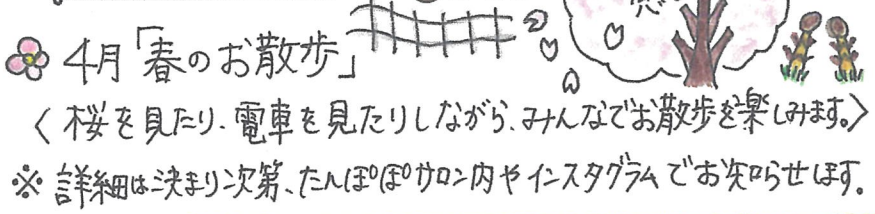 4月「春のお散歩」
〈桜を見たり、電車を見たりしながら、みんなでお散歩を楽しみます。〉
※詳細は決まり次第、たんぽぽサロン内やインスタグラムでお知らせします。